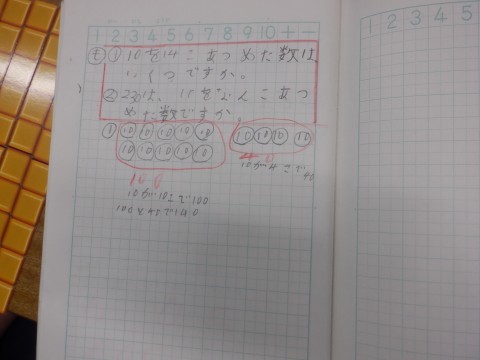 1 2 3 4 5 6 7 8 9 10 + -
も ① 10を14こあつめた数は、
いくつですか。
② 230は、10をなんこあつ
めた数ですか。
① 10 10 10 10 10 10 10 10 10
10 10 10 10 10
100 40
10が4こで
40
10が10こで100
100と40で140
1 2 3 4 5